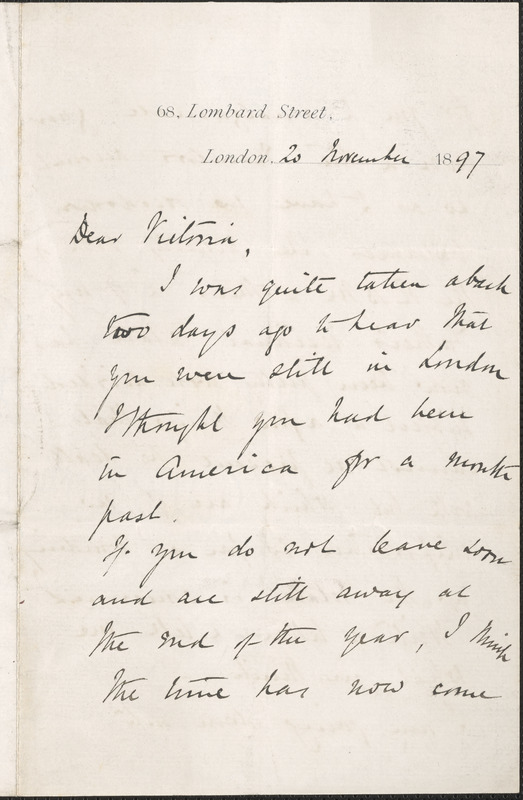 68, Lombard Street,
London, 20 November 1897
Dear Victoria,
I was quite taken aback
two days ago to hear that
you were still in London
I thought you had been
in America for a month
past.
If you do not leave soon
and are still away at
the end of the year, I think
the time has now come